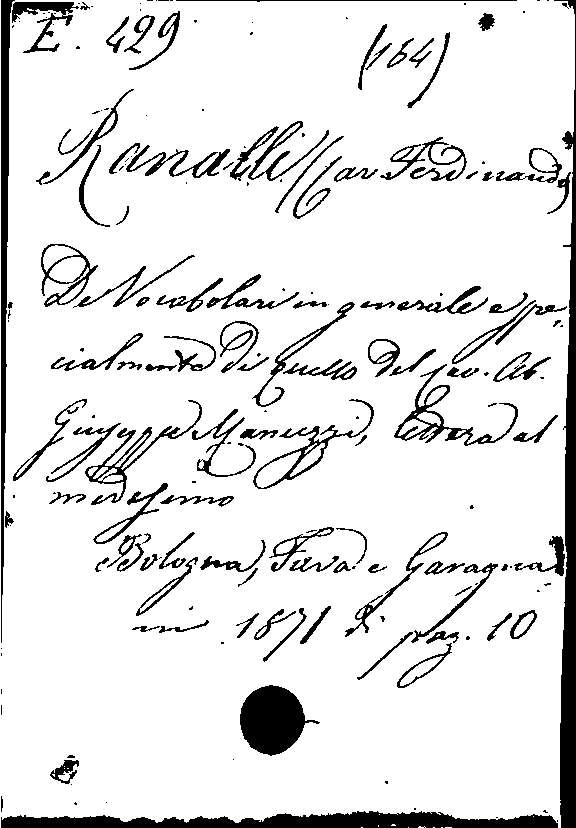 E. 429
(164)
Ranalli (Cav. Ferdinando)
De Vocabolari in generale e spe-
cialmente di quello del Cav. Ab.
Giuseppe Manuzzi, Lettera al
medesimo
Bologna, Fava e Garagnani
in 1871 di pag. 10